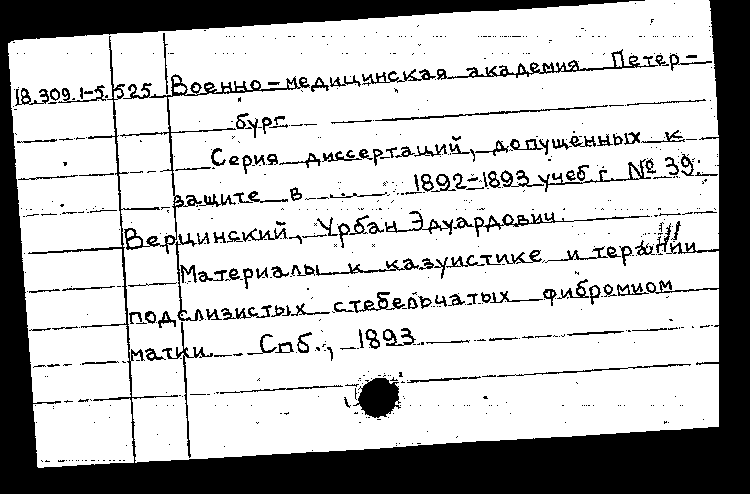 18.309.1-5. 525. Военно-медицинская академия Петер-
бург.
Серия диссертаций, допущенных к
защите в ... 1892-1893 учеб. г. № 39.
Верцинский, Урбан Эдуардович.
Материалы к казуистике и терапии
подслизистых стебельчатых фибромиом
матки. Спб., 1893.